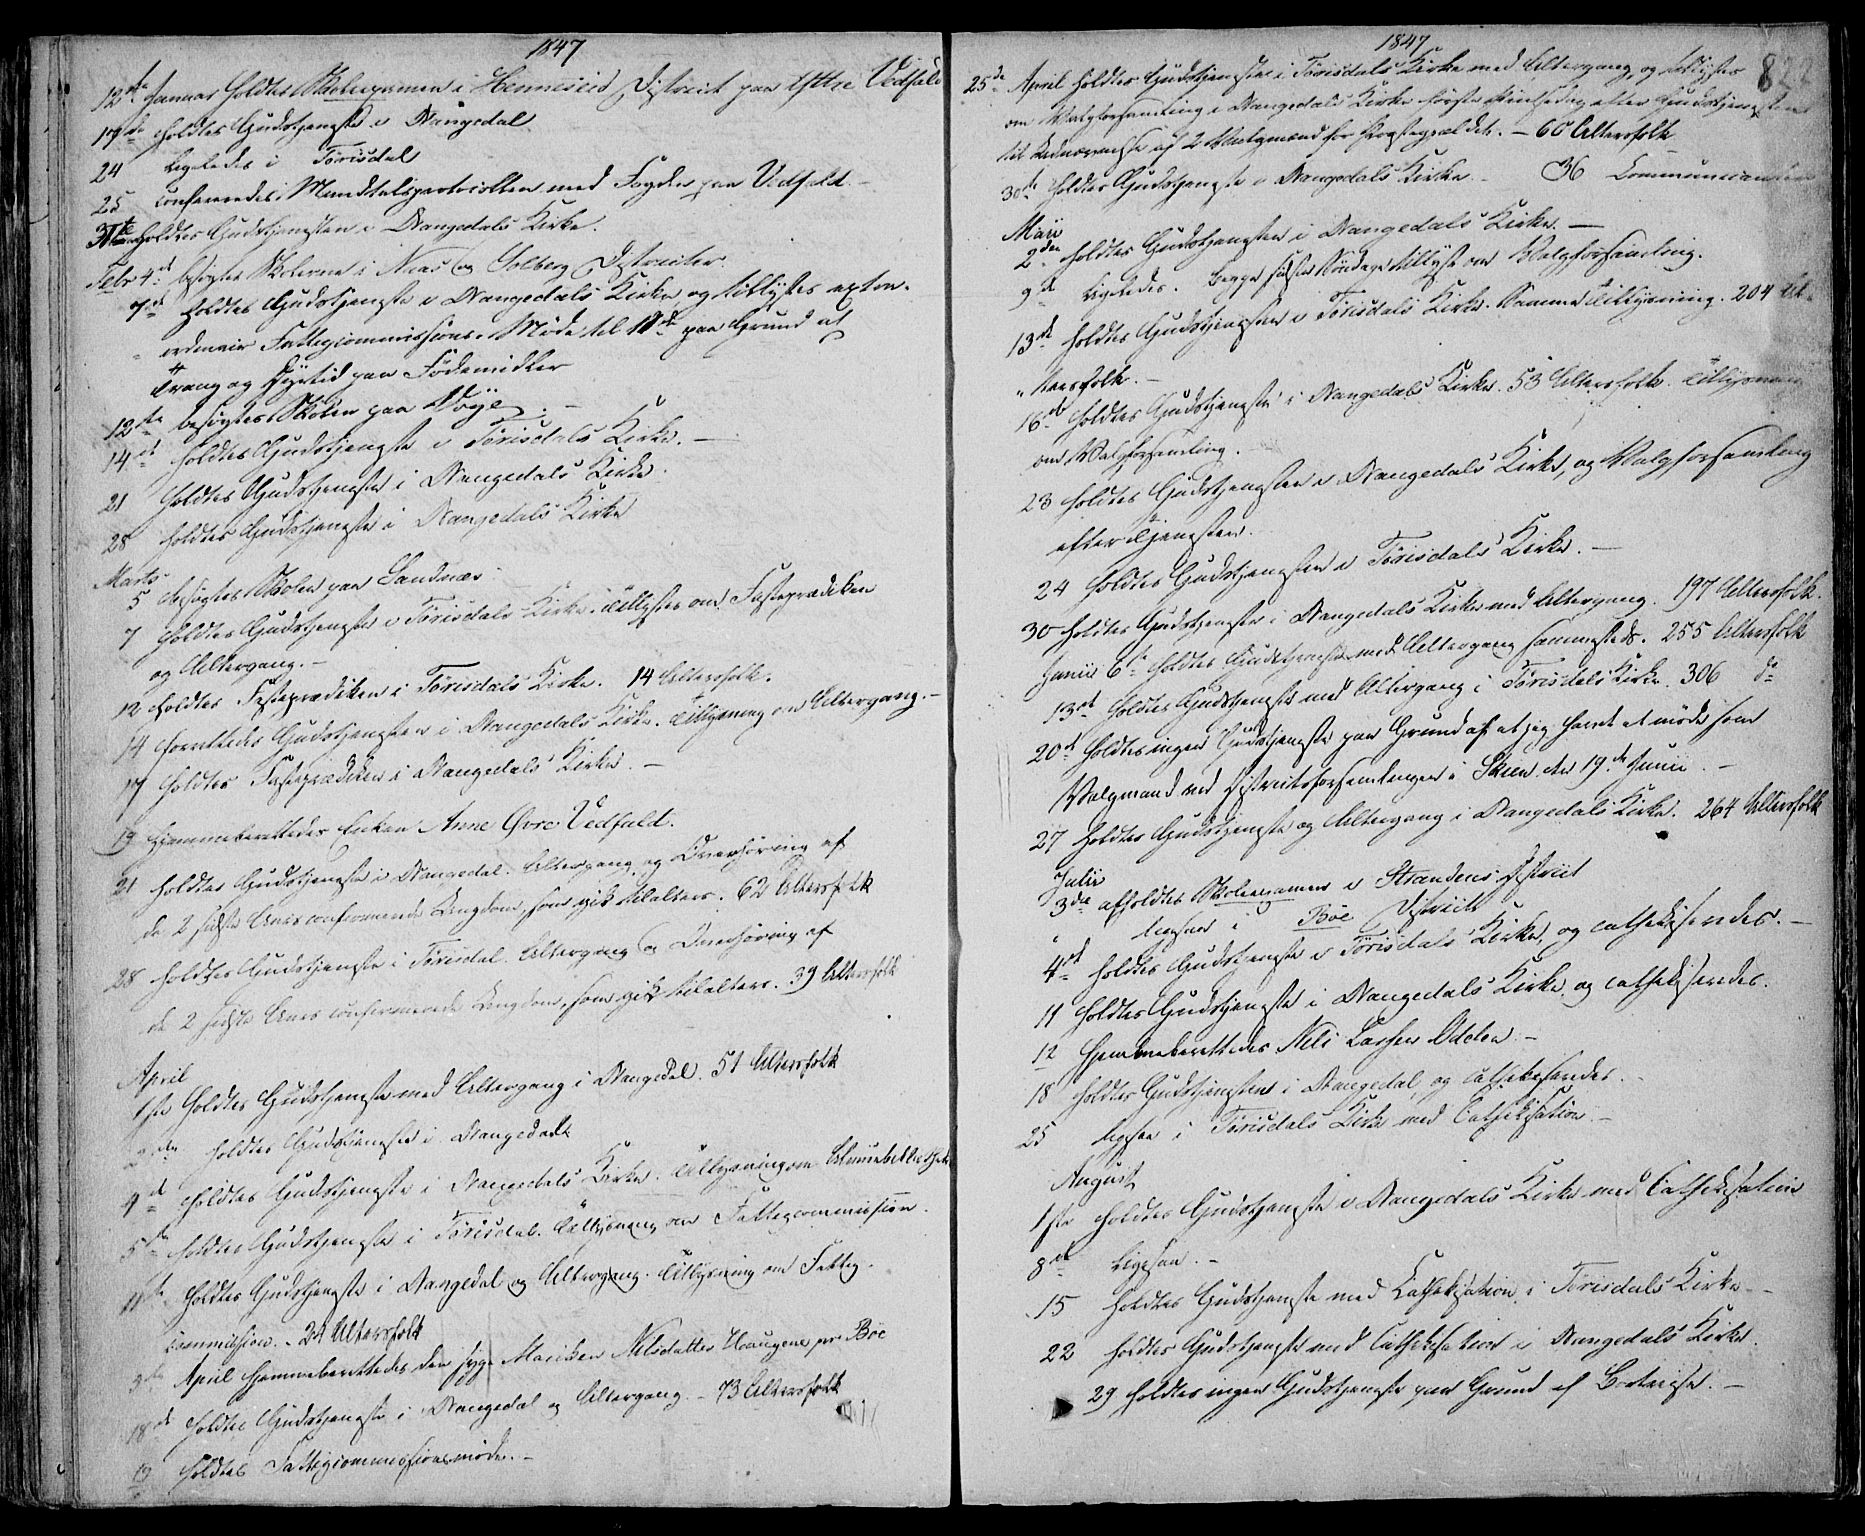 1847
12te Januar holdtes Skoleexamen i Henneseid District paa Ystre Vedfald
17de holdtes Gudstjeneste i Drangedal
24 Ligeledes i Törisdal
25 confereredes Mandtalsprotocollen med Fogden paa Vedfald. –
31te holdtes Gudstjenesten i Drangedals Kirke.
Febr 4de besögtes Skolerne i Naas og Solberg Districter.
7de holdtes Gudstjeneste i Drangedals Kirke og tillystes extra-
ordinair Fattigcommissions-Möde til paa Grund af
Trang og Dyrtid paa Födemidler
12te besögtes Skolen paa Vöje. –
14de holdtes Gudstjeneste i Törisdals Kirke. –
21 holdtes Gudstjeneste i Drangedals Kirke.
28 holdtes Gudstjeneste i Drangedals Kirke
Marts
5 besögtes Skolen paa Sandnæs.
7 holdtes Gudstjeneste i Törisdals Kirke. Tillystes om Fasteprædiken
og Altergang. –
12 holdtes Fasteprædiken i Törisdals Kirke. 14 Altersfolk.
14 forrettedes Gudstjenesten i Drangedals Kirke. Tillysning om Altergang. –
17 holdtes Fasteprædiken i Drangedals Kirke. –
19 hjemmeberettedes Enken Anne Övre Vedfald.
21 holdtes Gudstjeneste i Drangedal. Altergang og Overhöring af
de 2 sidste Aars confirmerede Ungdom, som gik til alters. 62 Altersfolk
28 holdtes Gudstjeneste i Törisdal. Altergang og Overhöring af
de 2 sidste Aars confirmerede Ungdom, som gik til alters. 39 Altersfolk
April
1ste holdtes Gudstjeneste med Altergang i Drangedal. 51 Altersfolk
2den holdtes Gudstjeneste i Drangedal
4de holdtes Gudstjeneste i Drangedals Kirke. Tillysning om
5te holdtes Gudstjeneste i Törisdal. Tillysning om Fattigcommission.
11te holdtes Gudstjeneste i Drangedal og Altergang. Tillysning om Fattig-
commission. – 24 Altersfolk
April hjemmeberettedes den syge Mariken Nilsdatter Haugene pr Böe
18de holdtes Gudstjeneste i Drangedal og Altergang. – 73 Altersfolk
19 holdtes Fattigcommissionsmöde. –
1847
25de April holdtes Gudstjeneste i Törisdals Kirke med Altergang, og tillystes
om Valgforsamling i Drangedals Kirke förste Pintsedag efter Gudstjenesten
til Udnævnelse af 2 Valgmænd for Præstegjældet. – 60 Altersfolk
30te holdtes Gudstjeneste i Drangedals Kirke. – 36 Communicanter
Maii
2den holdtes Gudstjenesten i Drangedals Kirke. –
9de Ligeledes. Begge sidste Söndage tillyst om Valgforsamling.
13de holdtes Gudstjenesten i Törisdals Kirke. Samme Tillysning. 204 Al-
„ tersfolk. –
16de holdtes Gudstjeneste i Drangedals Kirke. 53 Altersfolk. Tillysning
om Valgforsamling.
23 holdtes Gudstjenesten i Drangedals Kirke, og Valgforsamling
efter Tjenesten.
24 holdtes Gudstjenesten i Törisdals Kirke. –
30 holdtes Gudstjeneste i Drangedals Kirke med Altergang. 197 Altersfolk.
Junii 6te holdtes Gudstjeneste med Altergang sammesteds. 255 Altersfolk
13de holdtes Gudstjeneste med Altergang i Törisdals Kirke. 306 do
20de holdtes ingen Gudstjeneste paa Grund af at jeg havde at möde som
Valgmand ved Districtsforsamlingen i Skien den 19de Junii. –
27 holdtes Gudstjeneste og Altergang i Drangedals Kirke. 264 Altersfolk
Julii
3die afholdtes Skoleexamen i Strandens District
„ ligesaa i Böe District
4de holdtes Gudstjeneste i Törisdals Kirke, og cathekiseredes. –
11 holdtes Gudstjeneste i Drangedals Kirke, og cathekiseredes.
12 hjemmeberettedes Nils Larsen Odden. –
18 holdtes Gudstjenesten i Drangedal, og cathekiseredes. –
25 ligesaa i Törisdals Kirke med Cathekisation. –
August
1ste holdtes Gudstjeneste i Drangedals Kirke med Cathekisation
8de ligesaa. –
15 holdtes Gudstjeneste med Cathekisation i Törisdals Kirke. –
22 holdtes Gudstjeneste med Cathekisation i Drangedals Kirke.
29 holdtes ingen Gudstjeneste paa Grund af Bortreise. –